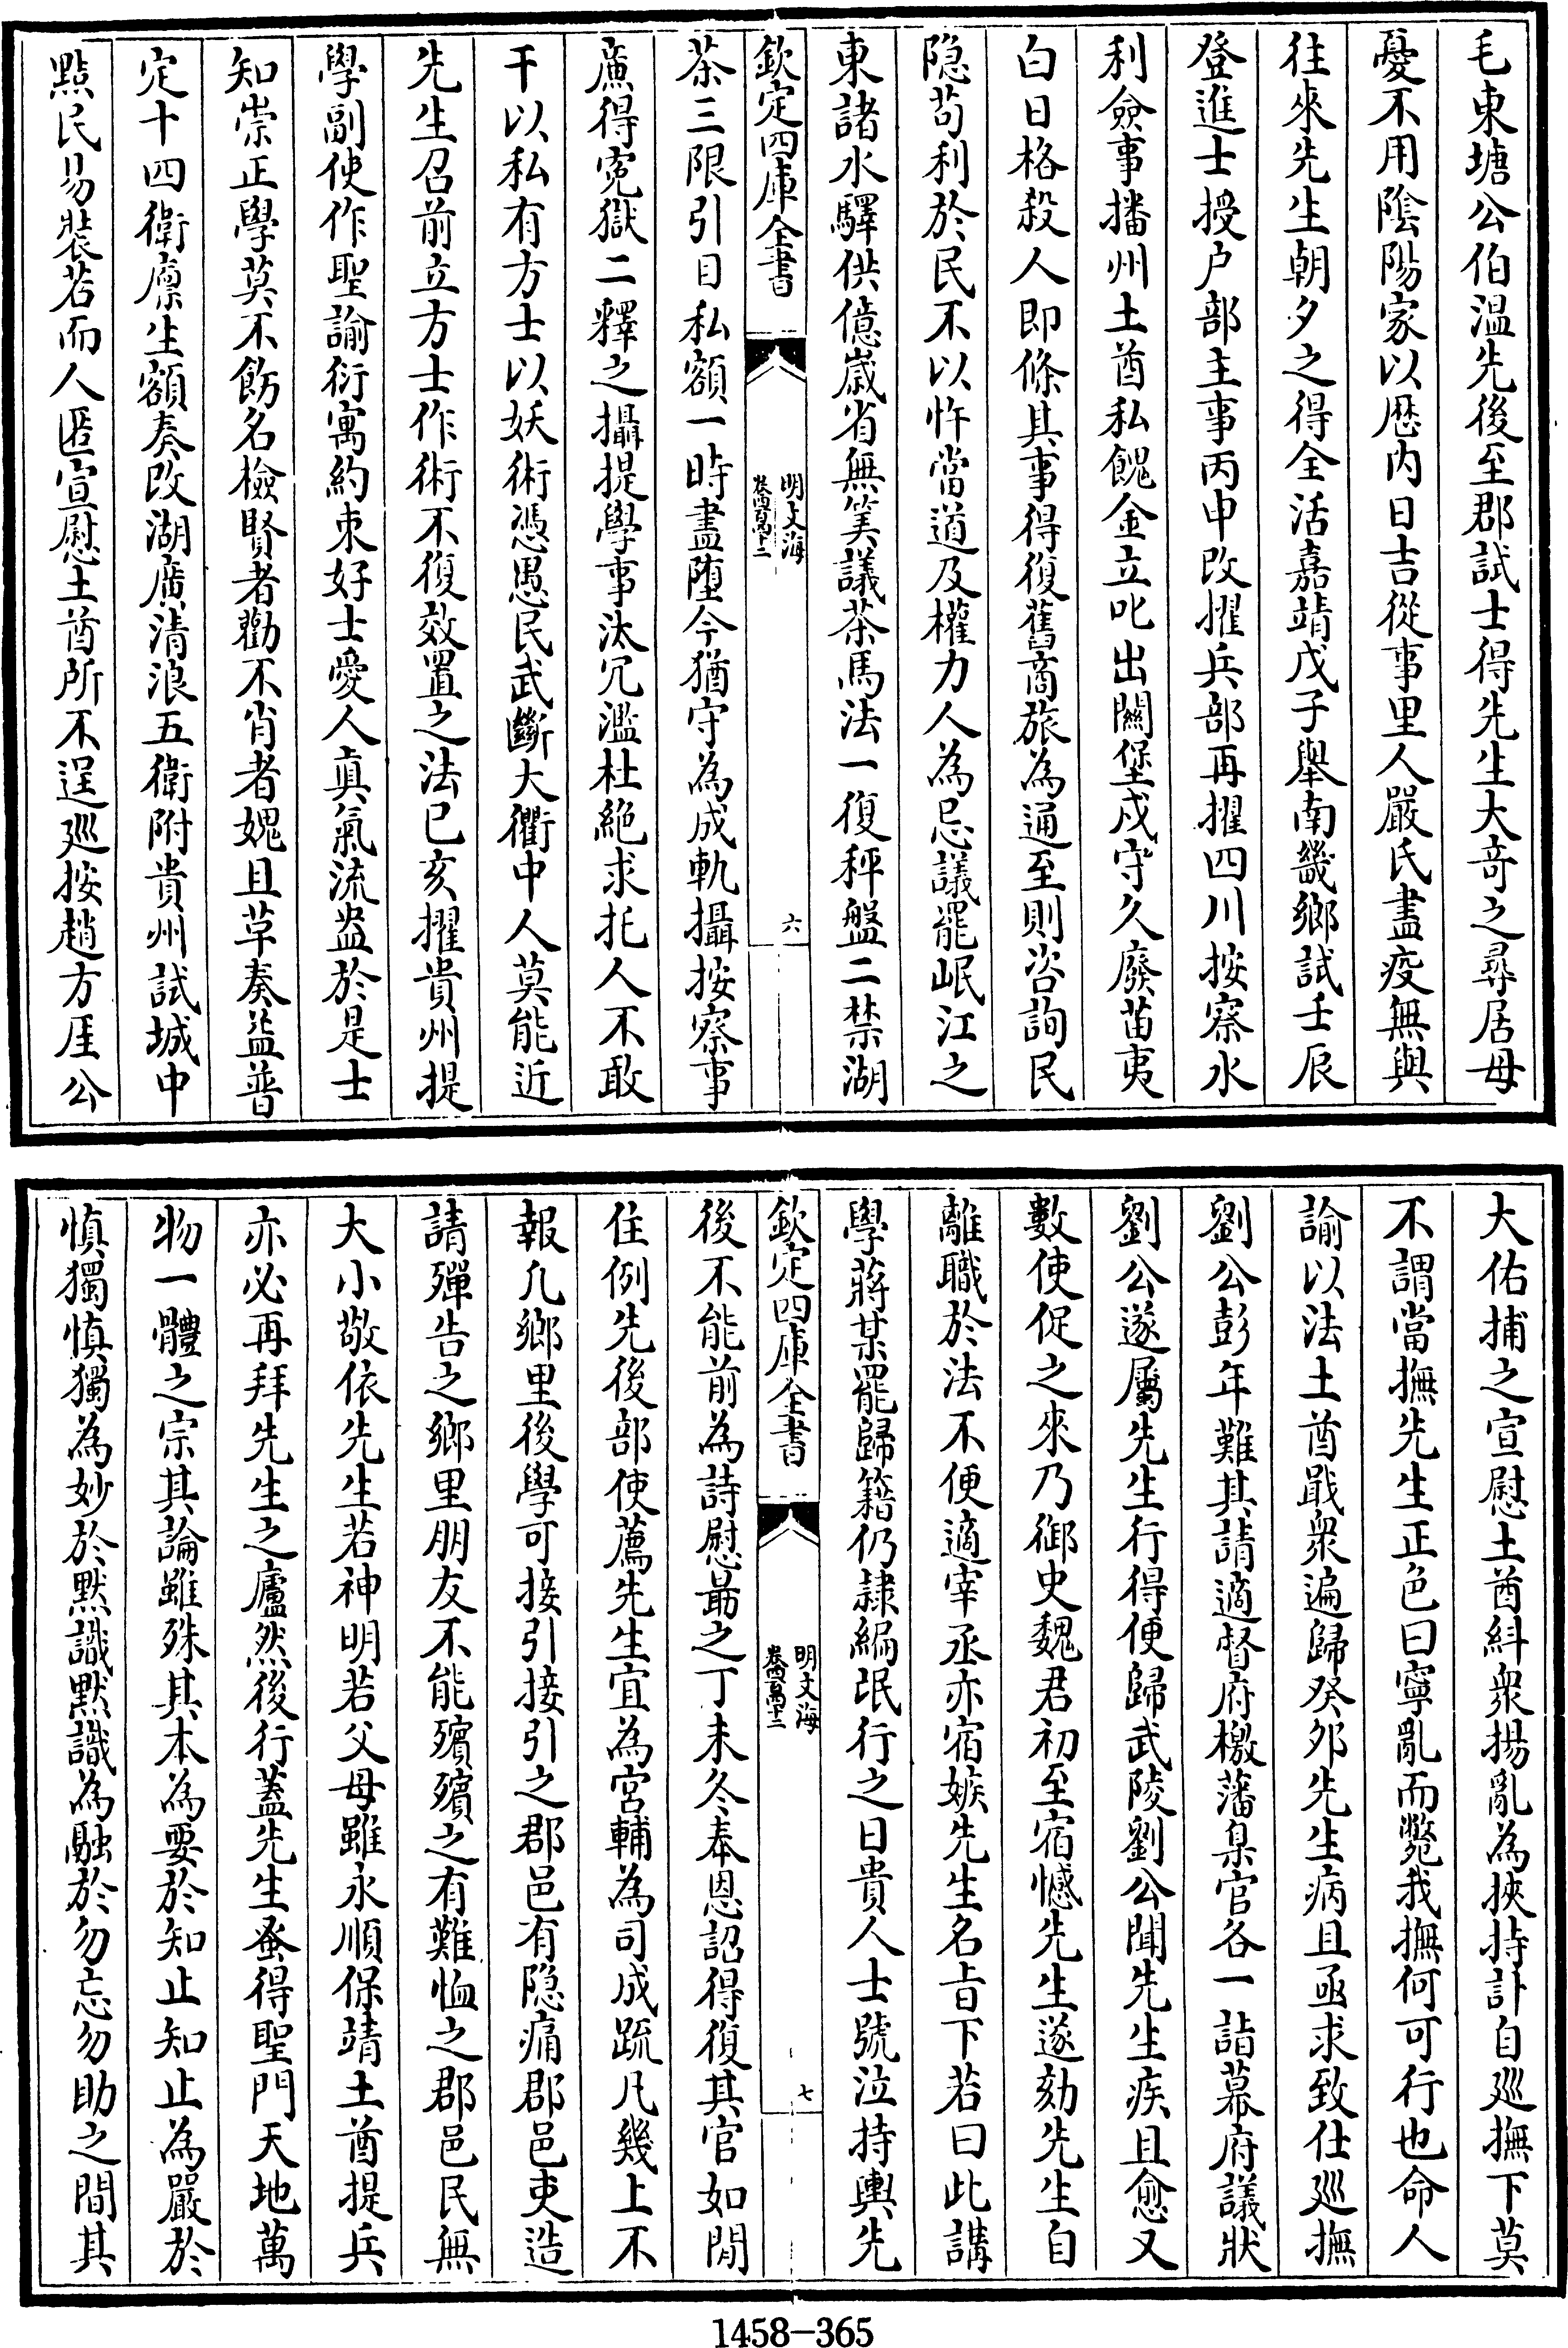 毛東塘公伯溫先後至郡試士得先生大竒之尋居母
憂不用隂陽家以厯内日吉從事里人嚴氏盡疫無與
往來先生朝夕之得全活嘉靖戊子舉南畿鄉試壬辰
登進士授户部主事丙申改擢兵部再擢四川按察水
利僉事播州土酋私餽金立叱出關堡戍守久廢苗夷
白日格殺人即條其事得復舊商旅為通至則咨詢民
隐苟利於民不以忤當道及權力人為忌議罷岷江之
東諸水驛供億嵗省無筭議茶馬法一復秤盤二禁湖
欽定四庫全書
明文海
卷四百四十二
六
茶三限引目私額一時盡墮今猶守為成軌攝按察事
廉得寃獄二釋之攝提學事汰冗濫杜絶求托人不敢
干以私有方士以妖術憑愚民武斷大衢中人莫能近
先生召前立方士作術不復效置之法已亥擢貴州提
學副使作聖諭衍寓約束好士愛人真氣流盎於是士
知崇正學莫不飭名檢賢者勸不肖者媿且草奏益普
定十四衛廪生額奏改湖廣清浪五衛附貴州試城中
點民易裝若而人匿宣慰土酋所不逞廵按趙方厓公
大佑捕之宣慰土酋糾衆揚亂為挾持訃自廵撫下莫
不謂當撫先生正色曰寧亂而斃我撫何可行也命人
諭以法土酋戢衆遍歸癸夘先生病且亟求致仕廵撫
劉公彭年難其請適督府檄藩臬官各一詣幕府議狀
劉公遂屬先生行得便歸武陵劉公聞先生疾且愈又
數使促之來乃御史魏君初至宿憾先生遂劾先生自
離職於法不便適宰丞亦宿嫉先生名旨下若曰此講
學蔣某罷歸籍仍隷編氓行之日貴人士號泣持輿先
欽定四庫全書
明文海
卷四百四十二
七
後不能前為詩慰勗之丁未冬奉恩詔得復其官如閒
住例先後部使薦先生宜為宫輔為司成疏凡幾上不
報凡鄉里後學可接引接引之郡邑有隐痛郡邑吏造
請殫告之鄉里朋友不能殯殯之有難恤之郡邑民無
大小敬依先生若神明若父母雖永順保靖土酋提兵
亦必再拜先生之廬然後行蓋先生蚤得聖門天地萬
物一體之宗其論雖殊其本為要於知止知止為嚴於
慎獨慎獨為妙於黙識黙識為融於勿忘勿助之間其
1458-365